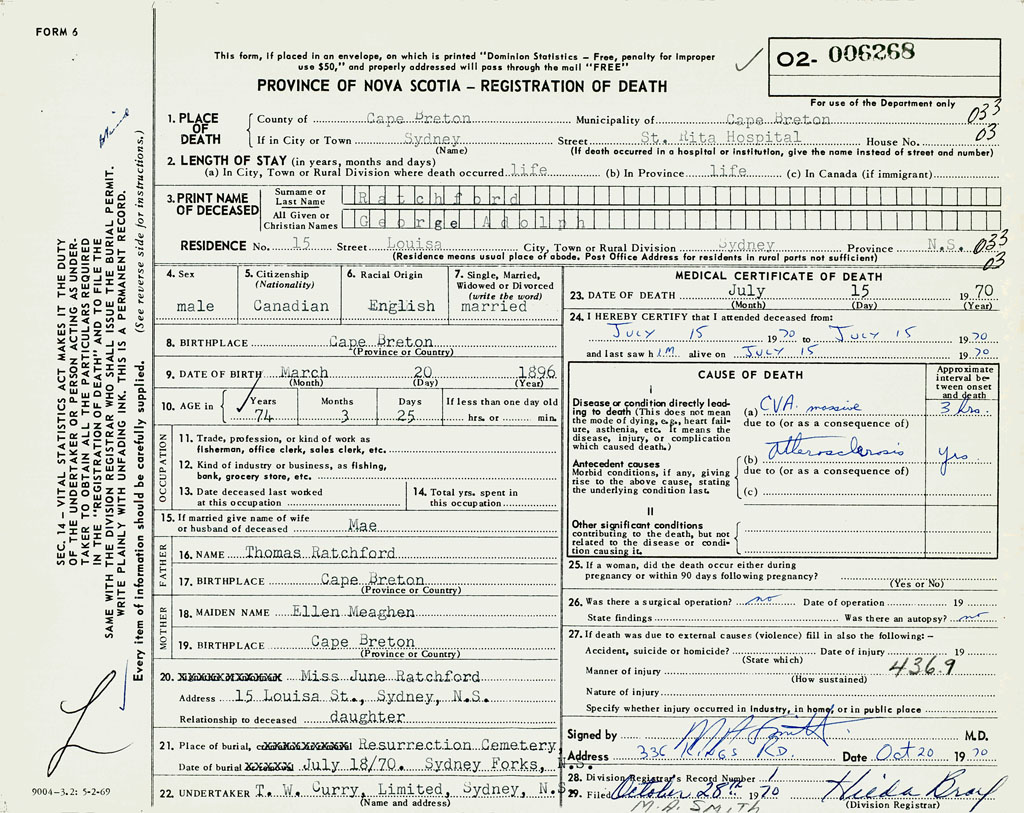 FORM 6
This form, if placed in an envelope, on which is printed "Dominion Statistics – Free, penalty for improper
use $50," and properly addressed will pass through the mail "FREE"
PROVINCE OF NOVA SCOTIA – REGISTRATION OF DEATH
02- 006268
For use of the Department only
1. PLACE OF DEATH
County of Cape Breton Municipality of Cape Breton 033
If in City or Town Sydney Street St. Rita Hospital House No. 03
(Name) (If death occurred in a hospital or institution, give the name instead of street and number)
2. LENGTH OF STAY (in years, months and days)
(a) In City, Town or Rural Division where death occurred life (b) In Province life (c) In Canada (if immigrant)
3. PRINT NAME OF DECEASED
Surname or Last Name Ratchford
All Given or Christian Names George Adolph
RESIDENCE No. 15 Street Louisa City, Town or Rural Division Sydney Province N.S. 033
(Residence means usual place of abode. Post Office Address for residents in rural parts not sufficient) 03
4. Sex
male
5. Citizenship
(Nationality)
Canadian
6. Racial Origin
English
7. Single, Married,
Widowed or Divorced
(write the word)
married
8. BIRTHPLACE Cape Breton
(Province or Country)
9. DATE OF BIRTH March 20 1896
(Month) (Day) (Year)
10. AGE in
Years Months Days If less than one day old
74 3 25 hrs. or min.
OCCUPATION
11. Trade, profession, or kind of work as
fisherman, office clerk, sales clerk, etc.
12. Kind of industry or business, as fishing,
bank, grocery store, etc.
13. Date deceased last worked
at this occupation
14. Total yrs. spent in
this occupation
15. If married give name of wife
or husband of deceased Mae
FATHER
16. NAME Thomas Ratchford
17. BIRTHPLACE Cape Breton
(Province or Country)
MOTHER
18. MAIDEN NAME Ellen Meaghen
19. BIRTHPLACE Cape Breton
(Province or Country)
20. Miss June Ratchford
Address 15 Louisa St., Sydney, N.S.
Relationship to deceased daughter
21. Place of burial, Resurrection Cemetery,
Date of burial July 18/70. Sydney Forks, N.S.
22. UNDERTAKER T. W. Curry, Limited, Sydney, N.S.
(Name and address)
MEDICAL CERTIFICATE OF DEATH
23. DATE OF DEATH July 15 1970
(Month) (Day) (Year)
24. I HEREBY CERTIFY that I attended deceased from:
JULY 15 1970 to JULY 15 1970
and last saw h IM alive on JULY 15 1970
CAUSE OF DEATH
Approximate
interval be-
tween onset
and death
I
Disease or condition directly lead-
ing to death (This does not mean
the mode of dying, e.g., heart fail-
ure, asthenia, etc. It means the
disease, injury, or complication
which caused death.)
(a) CVA massive 3 hrs.
due to (or as a consequence of)
Antecedent causes
Morbid conditions, if any, giving
rise to the above cause, stating
the underlying condition last.
(b) Atterosclerosis yrs
due to (or as a consequence of)
(c)
II
Other significant conditions
contributing to the death, but not
related to the disease or condi-
tion causing it.
25. If a woman, did the death occur either during
pregnancy or within 90 days following pregnancy?
(Yes or No)
26. Was there a surgical operation? no Date of operation 19
State findings Was there an autopsy? no
27. If death was due to external causes (violence) fill in also the following: –
Accident, suicide or homicide? Date of injury 19
(State which)
Manner of injury 436.9
(How sustained)
Nature of injury
Specify whether injury occurred in industry, in home, or in public place
Signed by M A Smith M.D.
Address 336 KINGS RD. Date Oct 20 1970
28. Division Registrar's Record Number 1
29. Filed October 28th 1970 Hilda Bray
M. A. SMITH (Division Registrar)
SEC. 14 – VITAL STATISTICS ACT MAKES IT THE DUTY
OF THE UNDERTAKER OR PERSON ACTING AS UNDER-
TAKER TO OBTAIN ALL THE PARTICULARS REQUIRED
IN THE "REGISTRATION OF DEATH" AND TO FILE THE
SAME WITH THE DIVISION REGISTRAR WHO SHALL ISSUE THE BURIAL PERMIT.
WRITE PLAINLY WITH UNFADING INK. THIS IS A PERMANENT RECORD.
Every item of information should be carefully supplied. (See reverse side for instructions.)
9004-3.2: 5-2-69